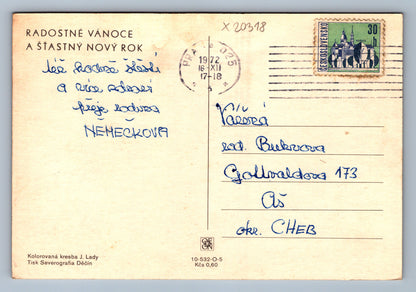 X 20318
RADOSTNÉ VÁNOCE
A ŠŤASTNÝ NOVÝ ROK
PRAHA 025
1972
16.XII
17-18
ČESKOSLOVENSKO
30
též hodně štěstí
a více zdraví
přeje rodina
NĚMEČKOVA
Vážená
rod. Bukvova
Gottvaldova 173
Aš
okr. CHEB
Kolorovaná kresba J. Lady
Tisk Severografia Děčín
10-532-O-5
Kčs 0,60